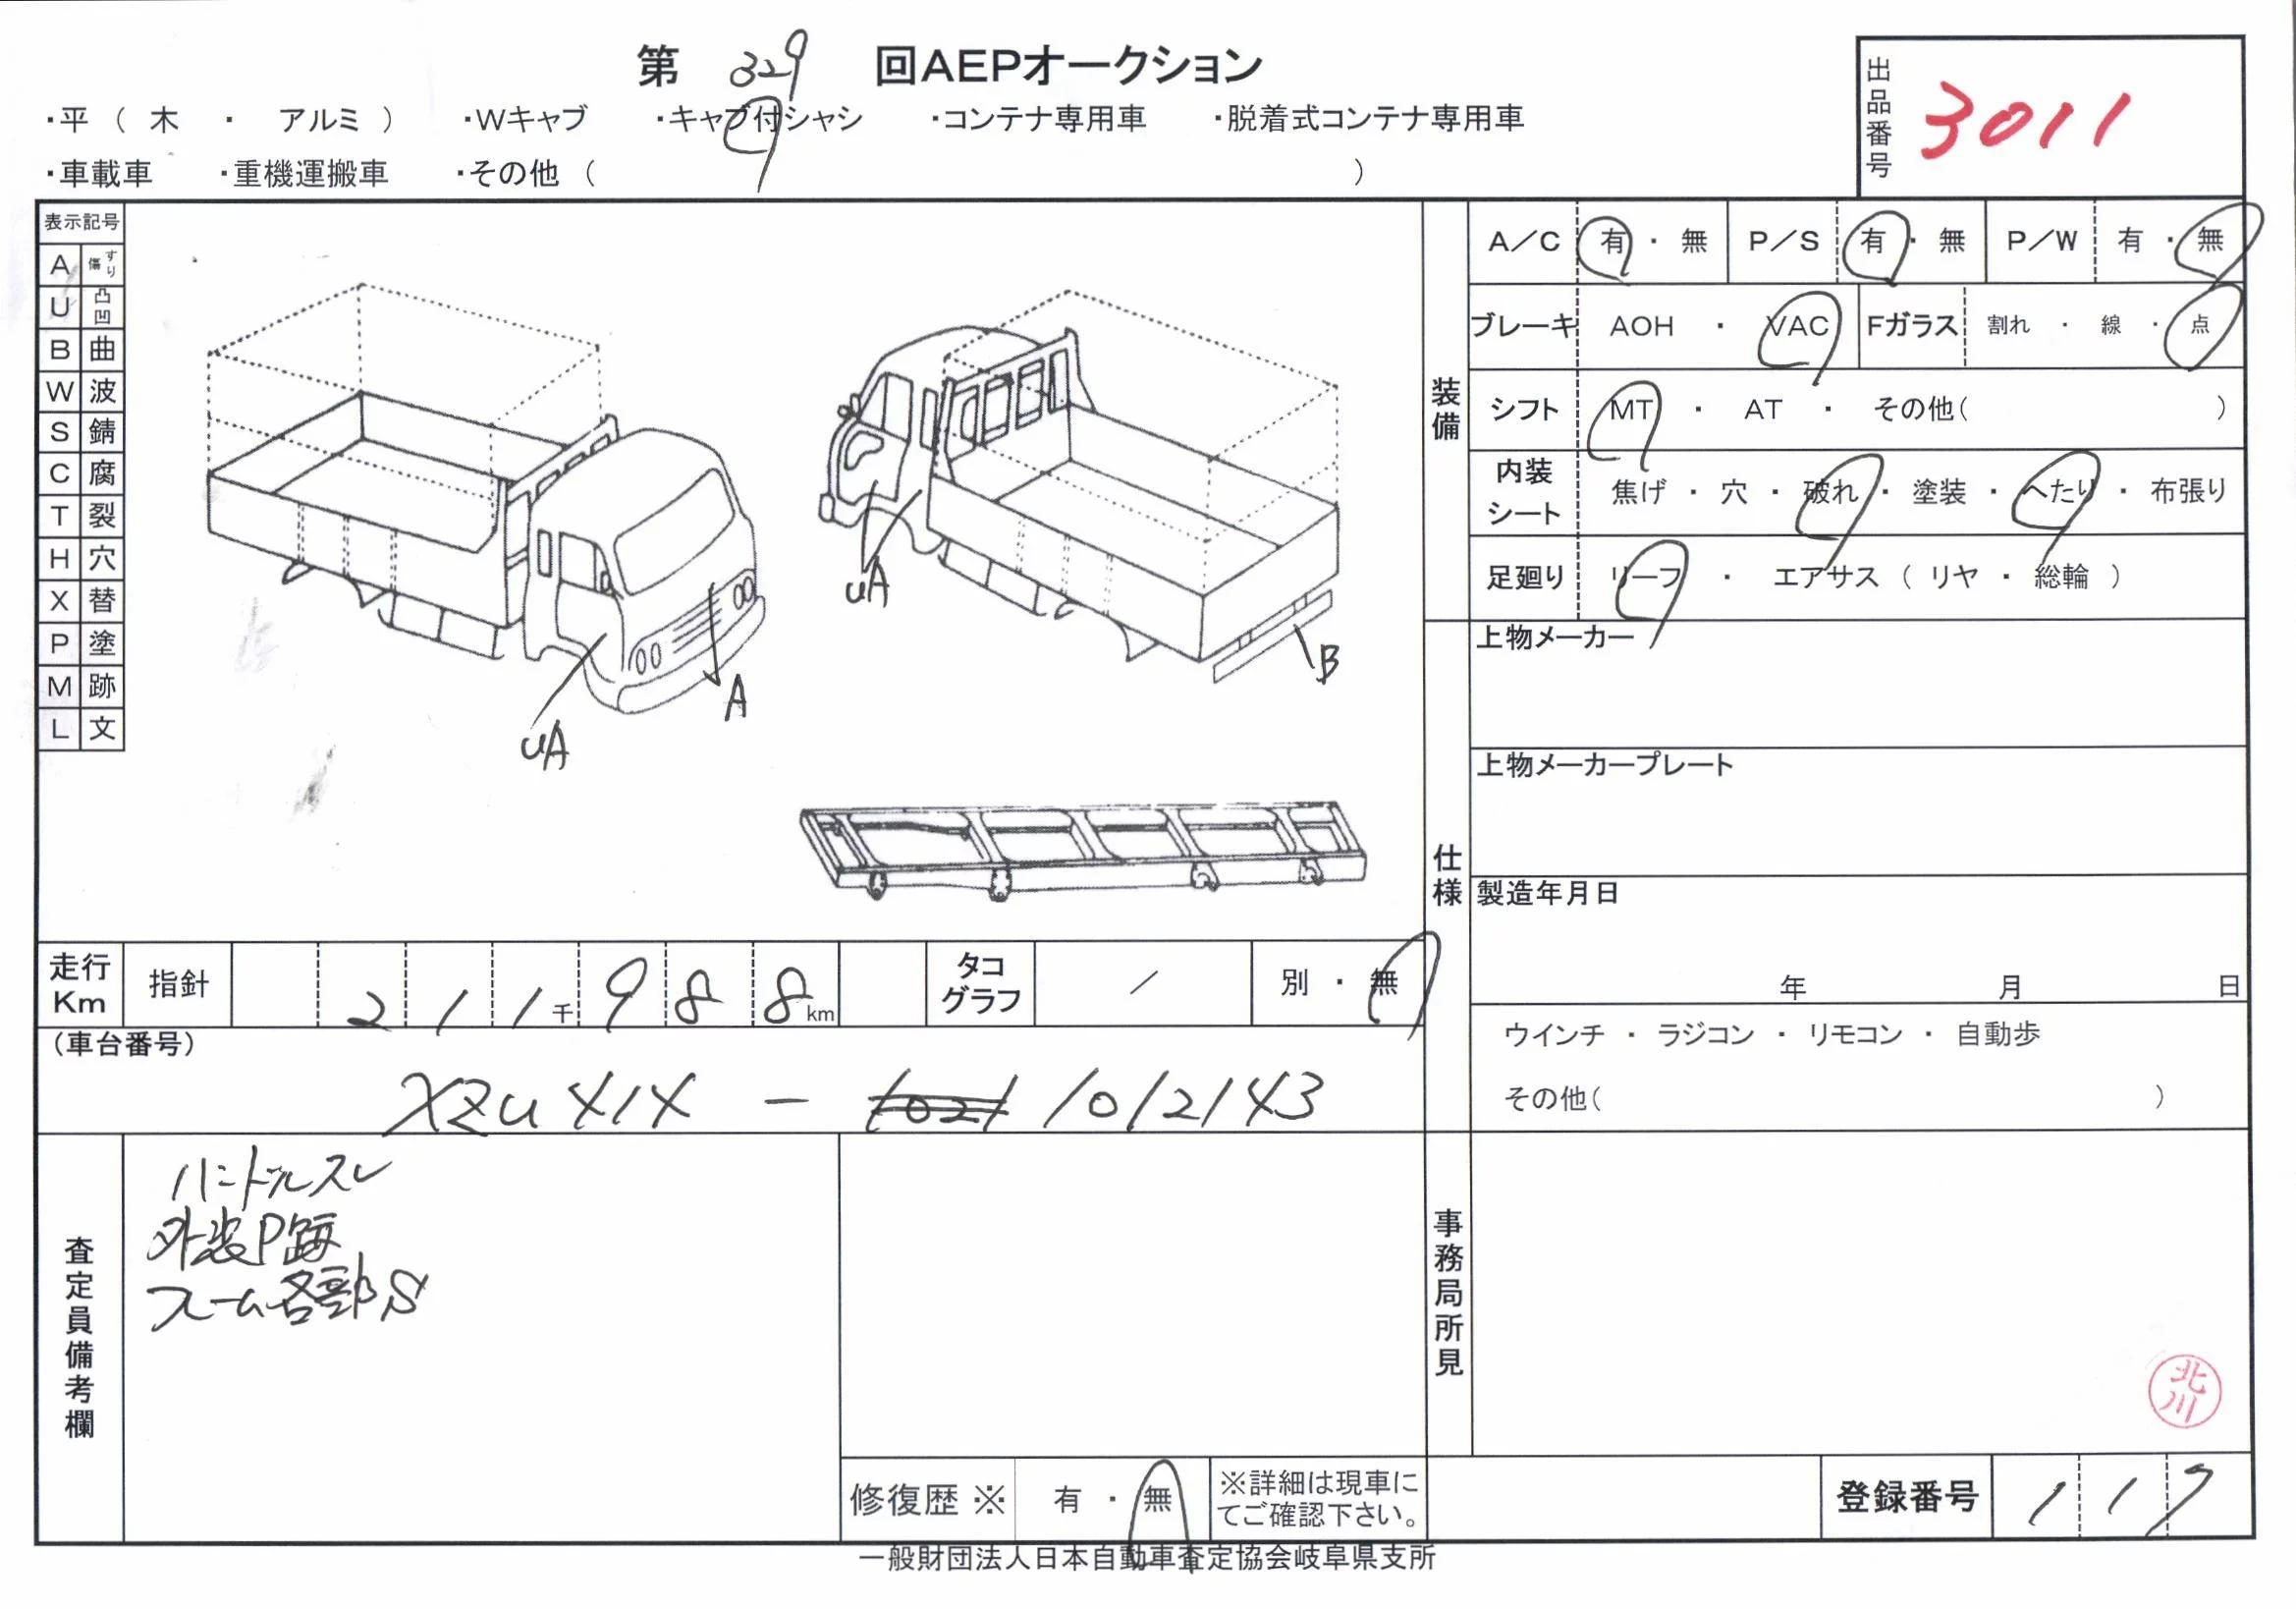 第 329 回AEPオークション
・平 （ 木 ・ アルミ ） ・Wキャブ ・キャブ付シャシ ・コンテナ専用車 ・脱着式コンテナ専用車
・車載車 ・重機運搬車 ・その他 （ ）
出品番号 3011
表示記号
A すり傷
U 凸凹
B 曲
W 波
S 錆
C 腐
T 裂
H 穴
X 替
P 塗
M 跡
L 文
uA
A
uA
B
装備
A／C 有 ・ 無 P／S 有 ・ 無 P／W 有 ・ 無
ブレーキ AOH ・ VAC Fガラス 割れ ・ 線 ・ 点
シフト MT ・ AT ・ その他（ ）
内装シート 焦げ ・ 穴 ・ 破れ ・ 塗装 ・ へたり ・ 布張り
足廻り リーフ ・ エアサス （ リヤ ・ 総輪 ）
仕様
上物メーカー
上物メーカープレート
製造年月日
年 月 日
ウインチ ・ ラジコン ・ リモコン ・ 自動歩
その他（ ）
走行Km 指針 211千988km タコグラフ / 別 ・ 無
（車台番号）
XZU414 - 1021 1012143
査定員備考欄
ハンドルスレ
外装P跡
フレーム各部S
事務局所見
北川
修復歴 ※ 有 ・ 無 ※詳細は現車にてご確認下さい。
登録番号 117
一般財団法人日本自動車査定協会岐阜県支所